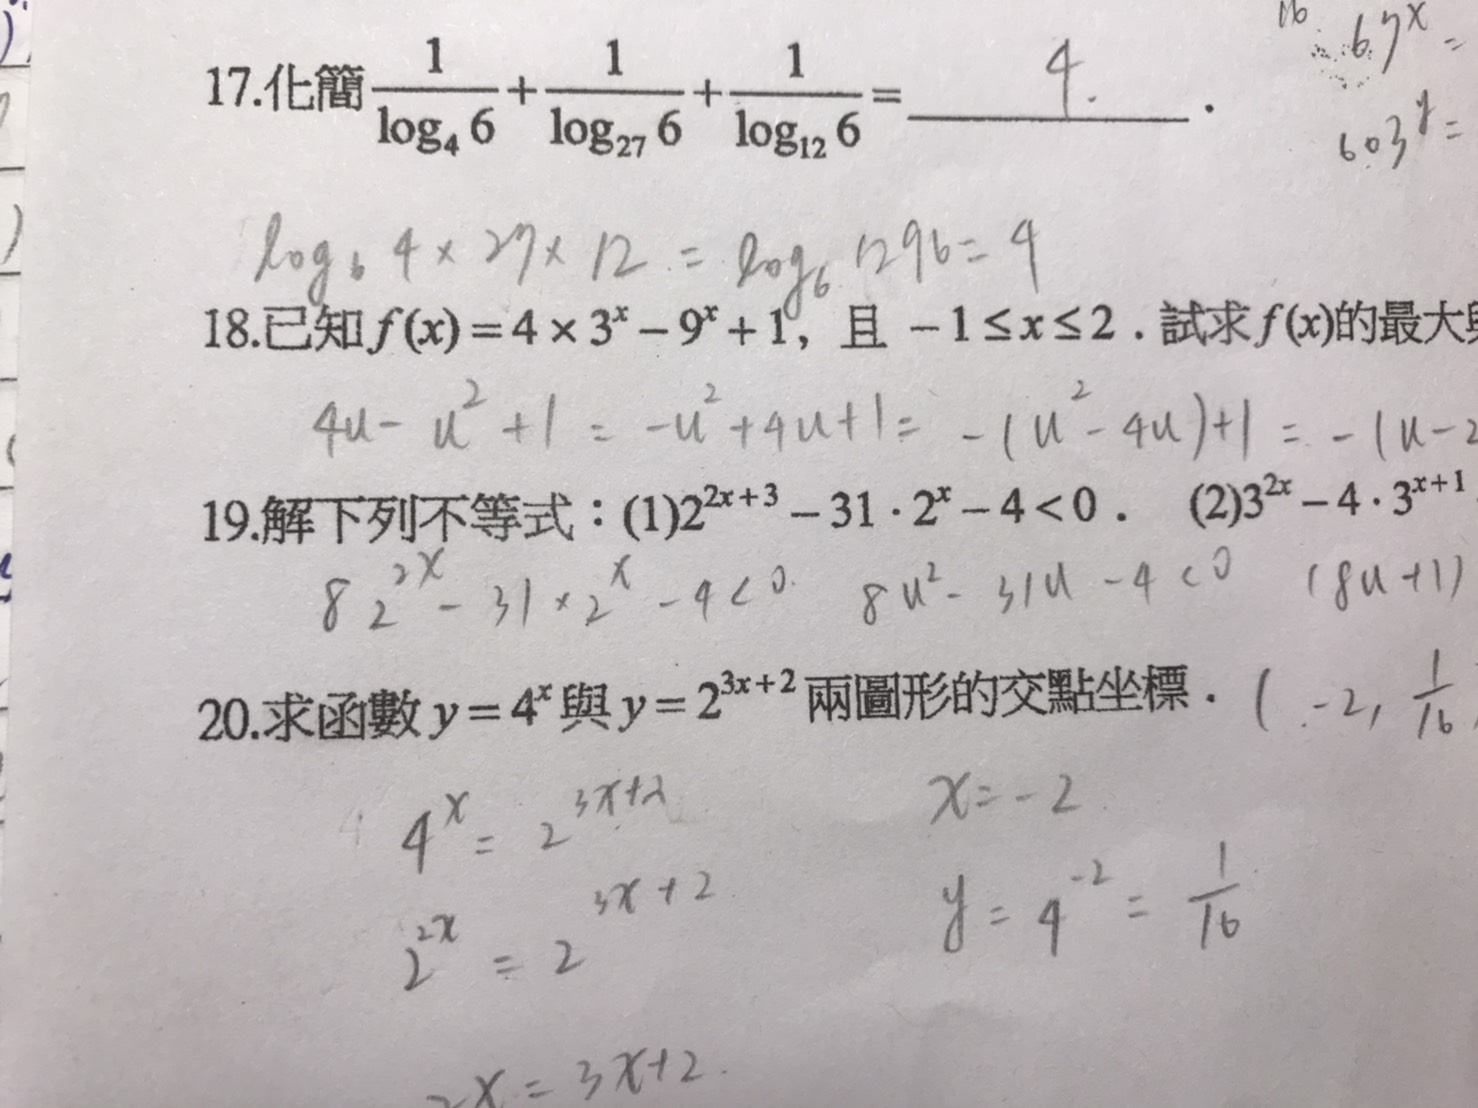 16
67ˣ =
603ʸ =
17.化簡 1/log₄ 6 + 1/log₂₇ 6 + 1/log₁₂ 6 = 4.
log₆ 4 × 27 × 12 = log₆ 1296 = 4
18.已知 f(x) = 4 × 3ˣ − 9ˣ + 1，且 −1 ≤ x ≤ 2．試求 f(x)的最大
4u − u² + 1 = −u² + 4u + 1 = −(u² − 4u) + 1 = −(u − 2
19.解下列不等式：(1)2^{2x+3} − 31 · 2ˣ − 4 < 0． (2)3^{2x} − 4 · 3^{x+1}
8 2^{2x} − 31 × 2ˣ − 4 < 0 8u² − 31u − 4 < 0 (8u + 1)
20.求函數 y = 4ˣ 與 y = 2^{3x+2} 兩圖形的交點坐標． ( −2, 1/16
4ˣ = 2^{3x+2} x = −2
2^{2x} = 2^{3x+2} y = 4⁻² = 1/16
2x = 3x+2